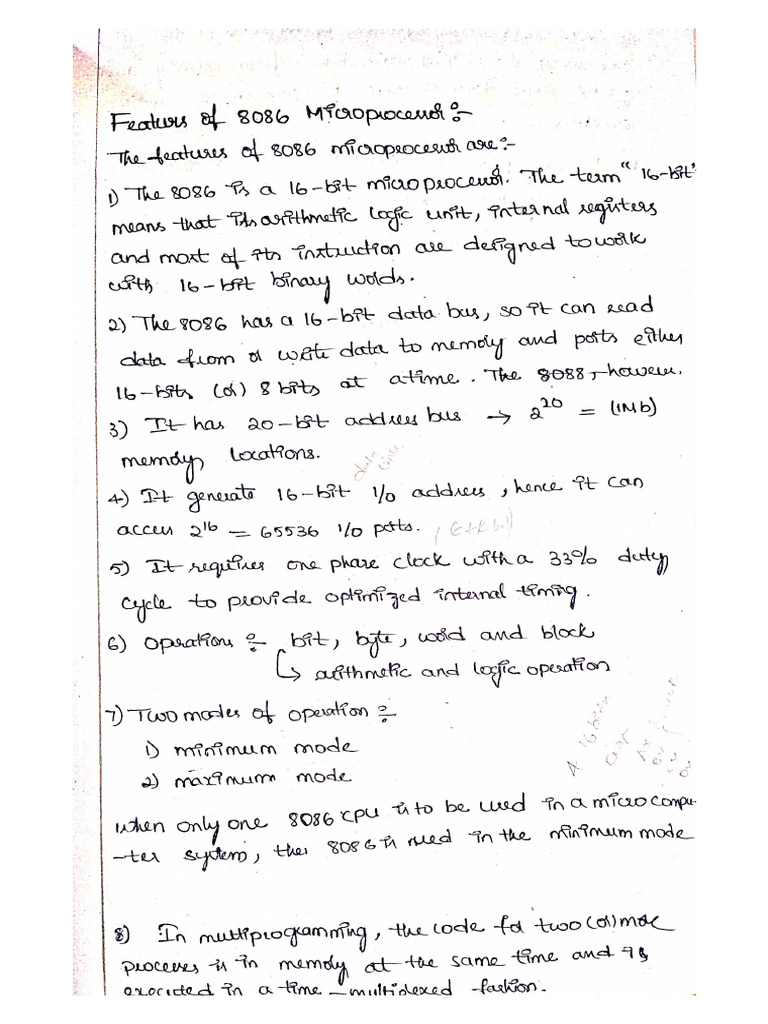 Features of 8086 Microprocessor :-
The features of 8086 microprocessor are :-
1) The 8086 is a 16-bit microprocessor. The term "16-bit"
means that its arithmetic logic unit, internal registers
and most of its instruction are designed to work
with 16-bit binary words.
2) The 8086 has a 16-bit data bus, so it can read
data from or write data to memory and ports either
16-bits (or) 8 bits at a time. The 8088, however.
3) It has 20-bit address bus → 2^20 = (1Mb)
memory locations.
4) It generate 16-bit I/o address, hence it can
access 2^16 = 65536 I/o ports.
5) It requires one phase clock with a 33% duty
cycle to provide optimized internal timing.
6) Operations :- bit, byte, word and block
↳ arithmetic and logic operation
7) Two modes of operation :-
1) minimum mode
2) maximum mode
when only one 8086 CPU is to be used in a micro compu-
-ter system, the 8086 is used in the minimum mode
8) In multiprogramming, the code for two (or) more
processes is in memory at the same time and is
executed in a time-multiplexed fashion.